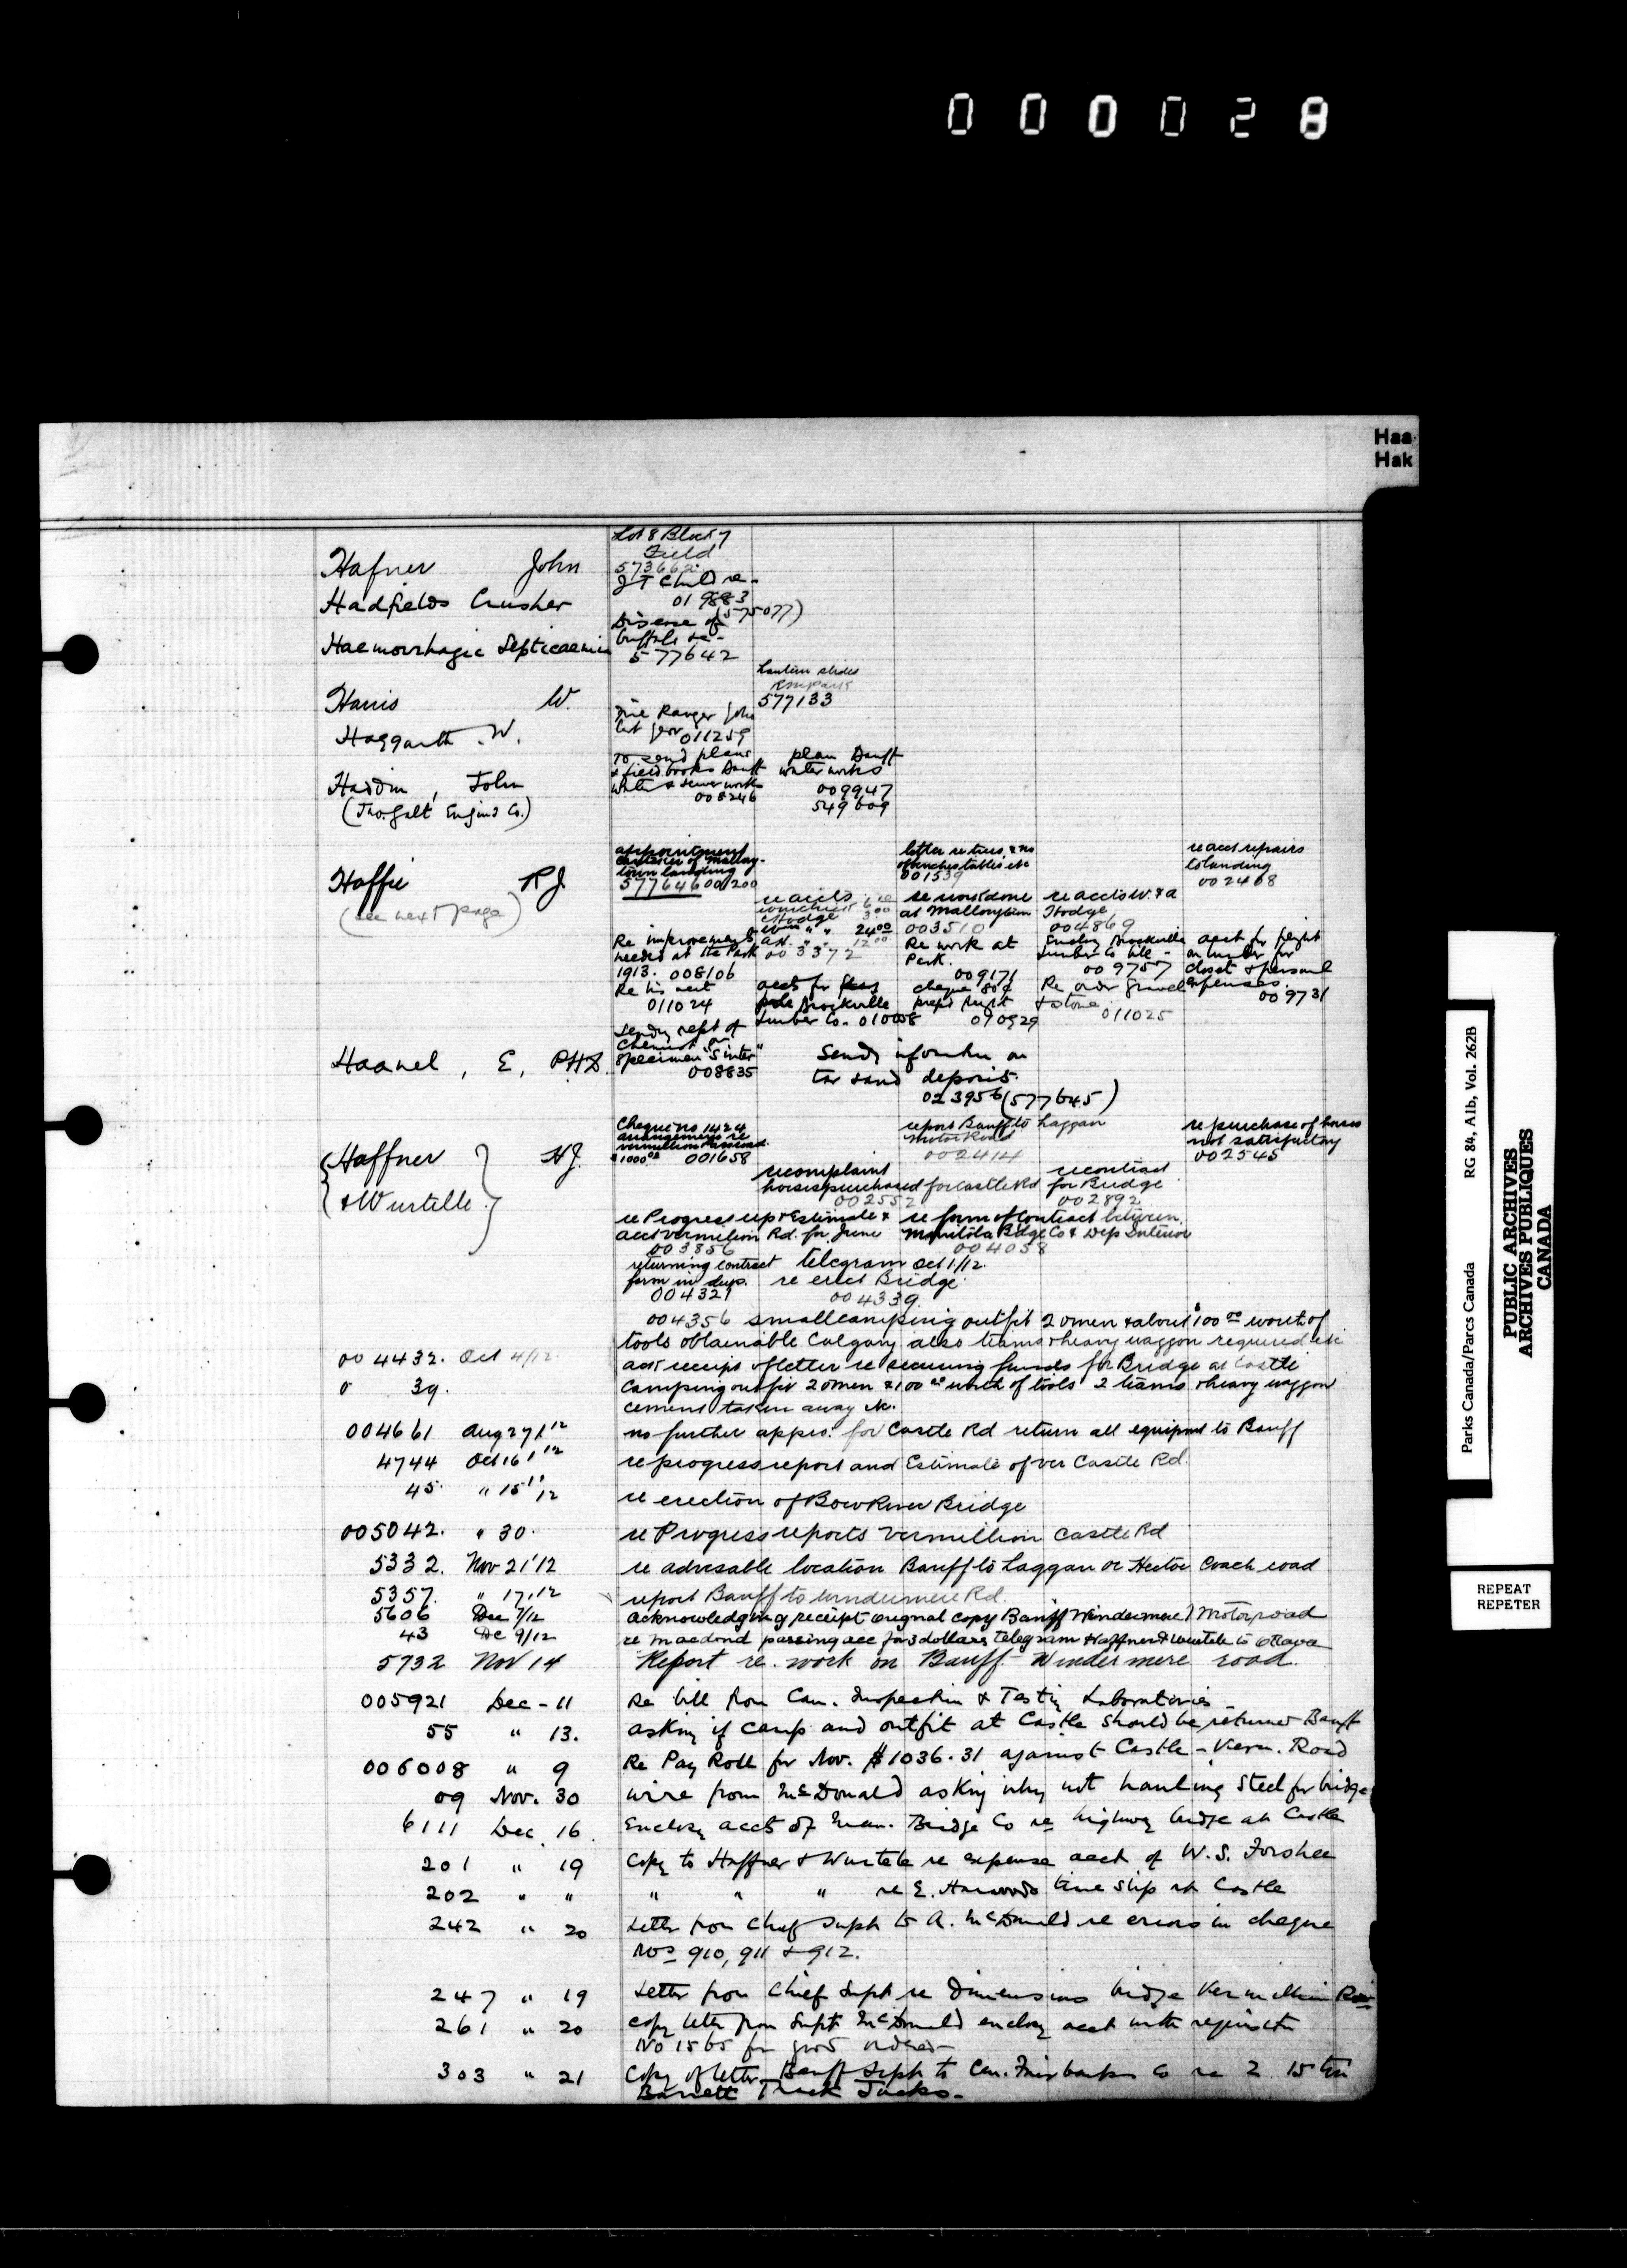 000028
Haa
Hak
Lot 8 Block 7
Field
573662
Hafner John
J T Child re-
019883
Hadfields Crusher
Disease of (575077)
buffalo re-
577642
Haemorrhagic Septicaemia
Lantern slides
577133
Harris W.
Fire Ranger John
011259
Haggarth W.
To send plans
& field books Banff
water & sewer works
008246
plan Banff
water works
009947
549609
Haddin, John
(Jno. Galt Engine Co.)
appointment
caretaker of Mallory-
town landing
577646 001200
letter re trees, & no
of benches tables etc
001539
re acct repairs
to landing
002468
Haffie R J
(see next page)
re accts
Hodge 3.00
Wm " " 24.00
A.H. " " 12.00
003372
re work done
at Mallorytown
003510
re accts W. & A
Hodge
004869
Re improvements
needed at the Park
1913. 008106
Re work at
Park.
009171
Enclosg Brockville
Lumber Co bill -
009757
acct for freight
on lumber for
closet & personal
expenses.
009731
Re his acct
011024
acct for flag
pole Brockville
Lumber Co. 010008
cheque 80¢
prepd freight
010929
Re order gravel
& stone
011025
Sendg rept of
Chemist on
Specimen "Sinter"
008835
Haanel, E, PH.D.
Sendg information on
tar sand deposits.
023956 (577645)
Cheque no 1424
arrangements re
vermillion Pass road
$1000.00 001658
report Banff to Laggan
Motor Road
002414
re purchase of horses
not satisfactory
002545
Haffner H J.
& Wurtelle
re complaint
horses purchased for Castle Rd
002552
re contract
for Bridge
002892
re Progress rep & Estimate &
acct Vermilion Rd. for June
003856
re form of contract between
Manitoba Bdge Co & Dep Interior
004058
returning contract
form in dup.
004321
telegram Oct 1/12.
re erect Bridge
004339.
004356 small camping outfit 20 men & about $100.00 worth of
tools obtainable Calgary also teams & heavy waggon required etc
004432. Oct 4/12. ack receipt of letter re securing funds for Bridge at Castle
0 39. Camping outfit 20 men & 100.00 worth of tools 2 teams & heavy waggon
cement taken away etc.
004661 Aug 27/12 no further appro. for Castle Rd return all equipment to Banff
4744 Oct 16/12 re progress report and Estimate of ver Castle Rd.
45. " 15/12 re erection of Bow River Bridge
005042. " 30. re Progress reports Vermillion Castle Rd
5332. Nov 21/12 re advisable location Banff to Laggan or Hector Coach road
5357. " 17/12 report Banff to Windermere Rd.
5606 Dec 7/12 acknowledging receipt original copy Banff Windermere Motor road
43 Dc 9/12 re Macdond passing acc for 3 dollars telegram Haffner & Wurtele to Ottawa
5732 Nov 14 Report re. work on Banff - Windermere road.
005921 Dec - 11 Re bill from Can. Inspection & Testing Laboratories -
55 " 13. asking if camp and outfit at Castle should be returned Banff
006008 " 9 Re Pay Roll for Nov. $1036.31 against Castle - Verm. Road
09 Nov. 30 wire from McDonald asking why not hauling steel for bridge
6111 Dec. 16. Enclosg accts of Man. Bridge Co re highway bridge at Castle
201 " 19 Copy to Haffner & Wurtele re expense acct of W. S. Forshee
202 " " " " " re E. Harwoods time slip at Castle
242 " 20 Letter from Chief Supt to A. McDonald re errors in cheque
Nos 910, 911 & 912.
247 " 19 Letter from Chief Supt re dimensions bridge Vermillion River
261 " 20 copy letter from Supt McDonald enclosg acct with requisition
No 1565 for goods ordered -
303 " 21 Copy of letter Banff Supt to Can. Fairbanks Co re 2 15 ton
Barrett Track Jacks -
Parks Canada/Parcs Canada RG 84, A1b, Vol. 262B
PUBLIC ARCHIVES
ARCHIVES PUBLIQUES
CANADA
REPEAT
REPETER